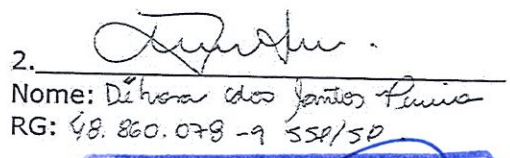 2.
Nome: Débora dos Santos Pereira
RG: 48.860.078-9 SSP/SP